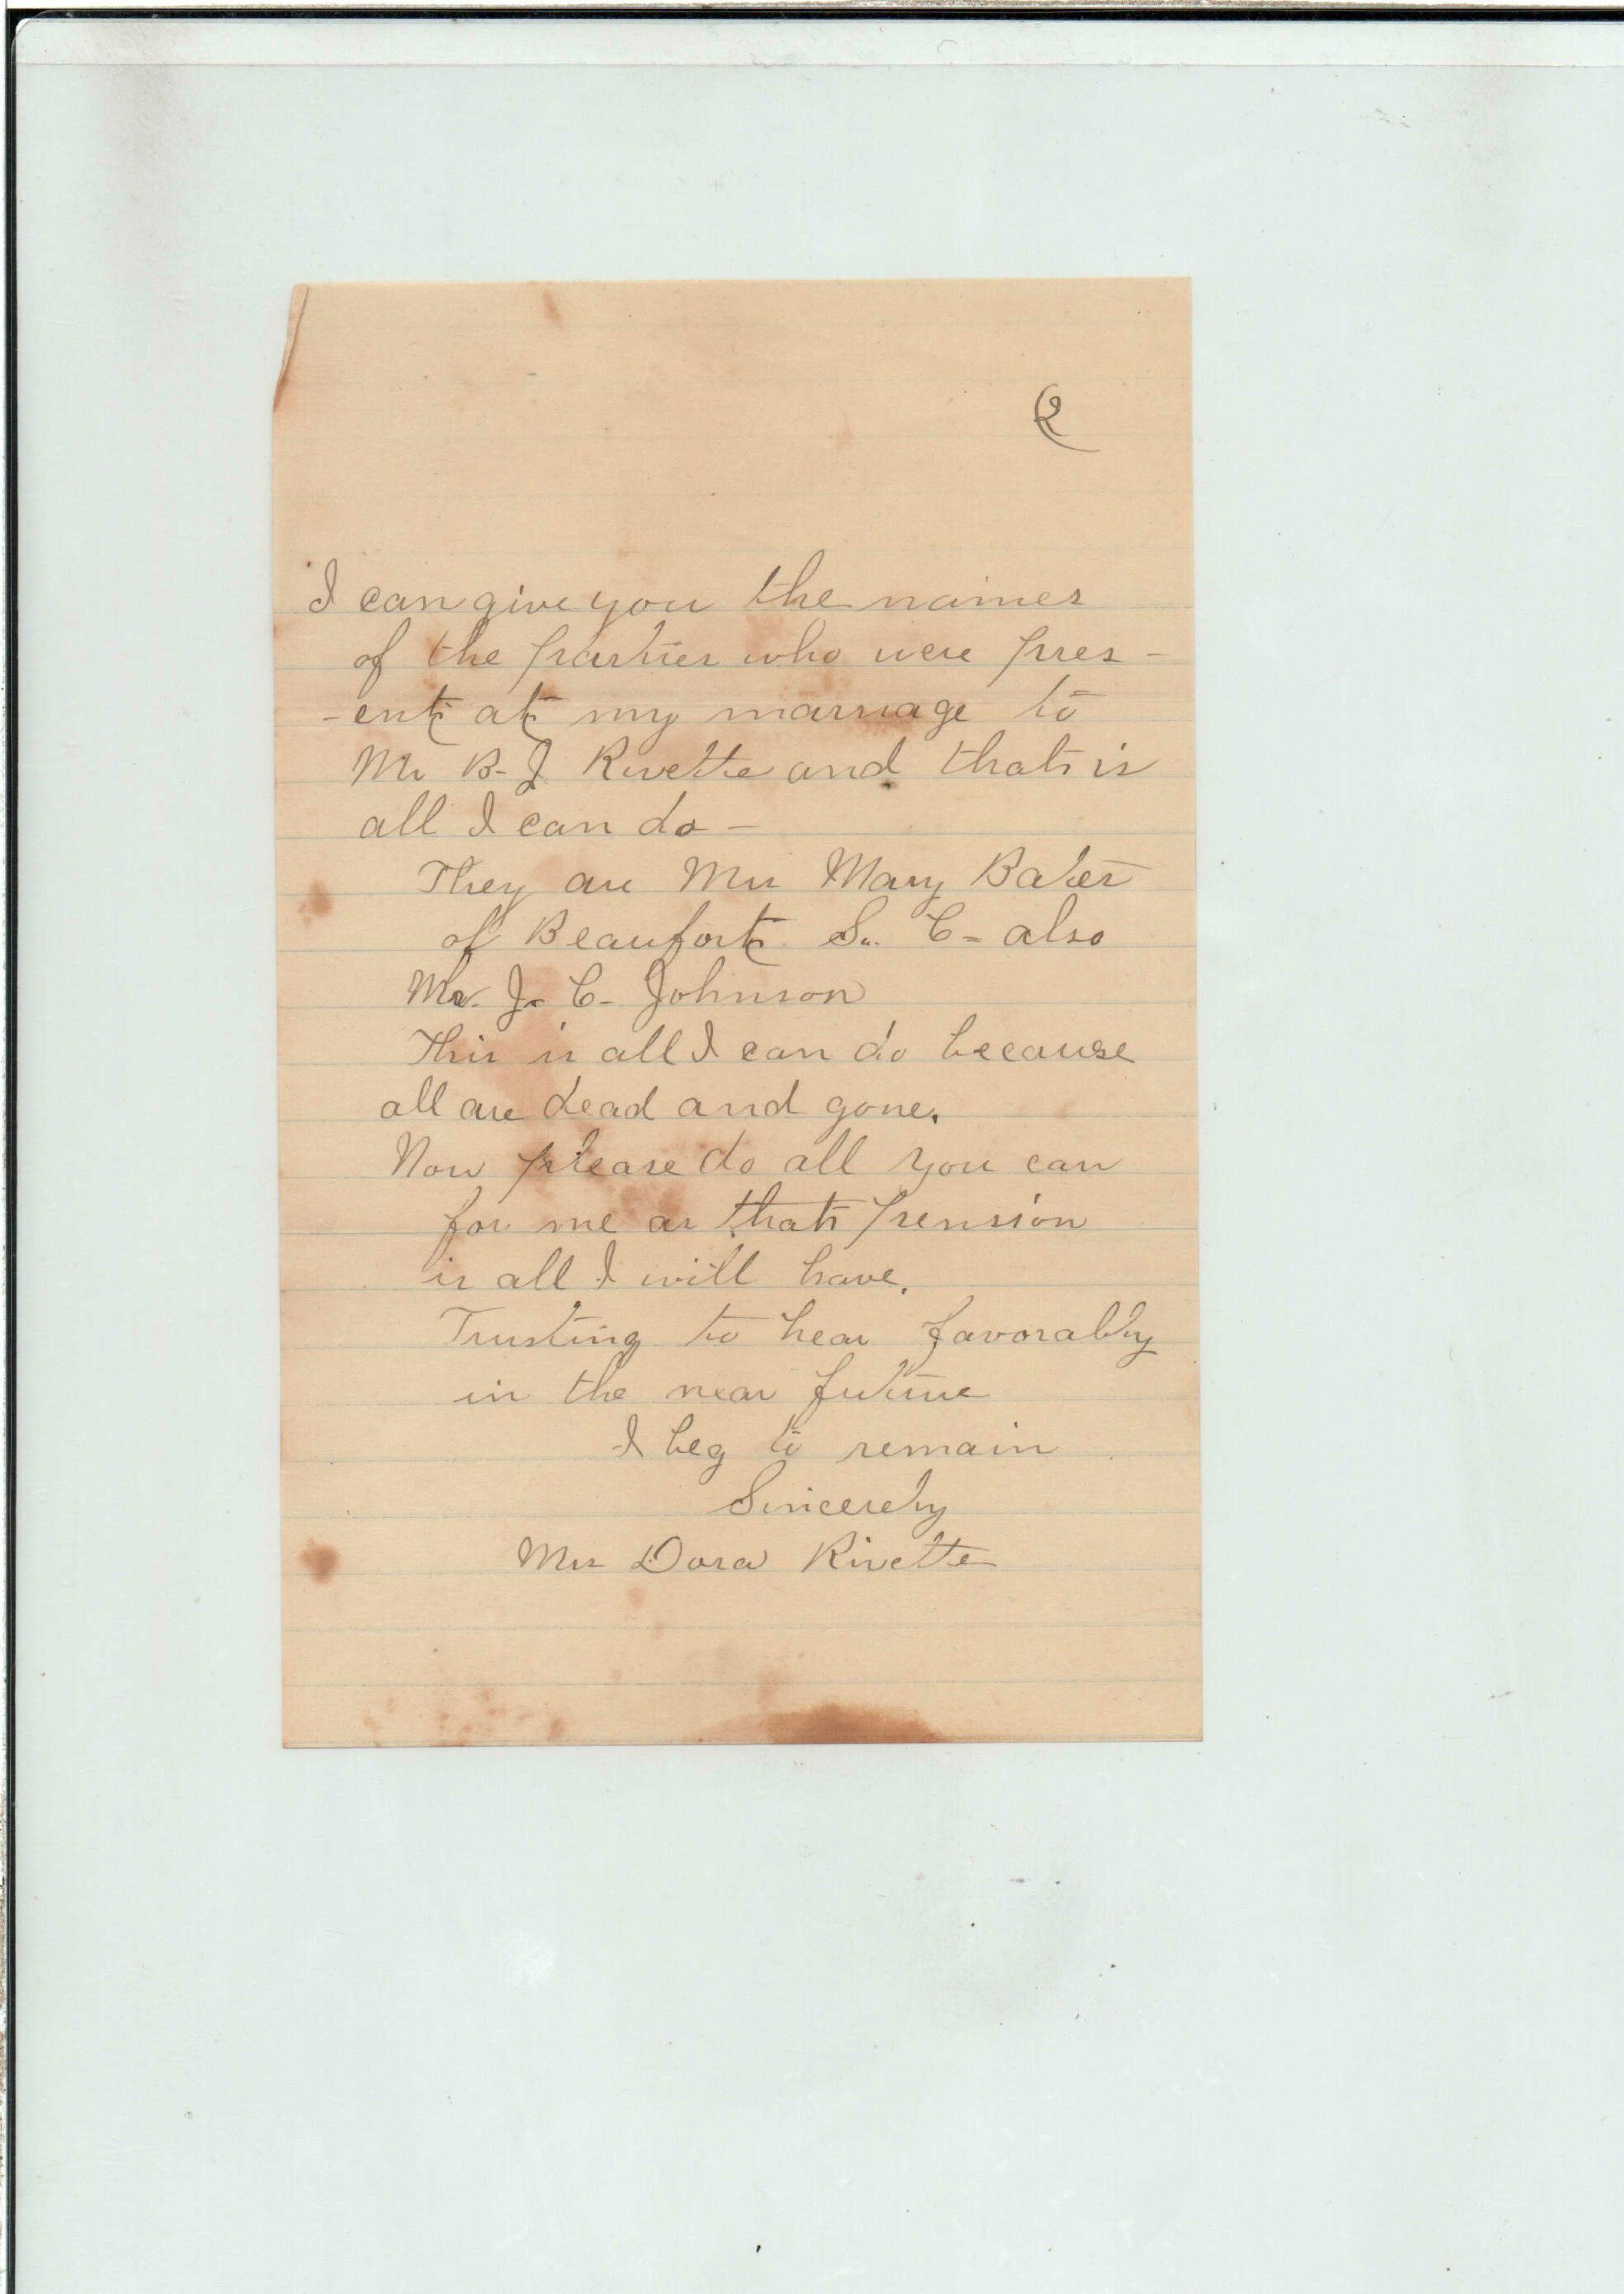 2
I can give you the names
of the parties who were pres-
-ent at my marriage to
Mr B-J Rivette and that is
all I can do-
They are Mrs Mary Bates
of Beaufort S. C- also
Mr. J. C- Johnson
This is all I can do because
all are dead and gone.
Now please do all you can
for me as that pension
is all I will have.
Trusting to hear favorably
in the near future
I beg to remain
Sincerely
Mrs Dora Rivette